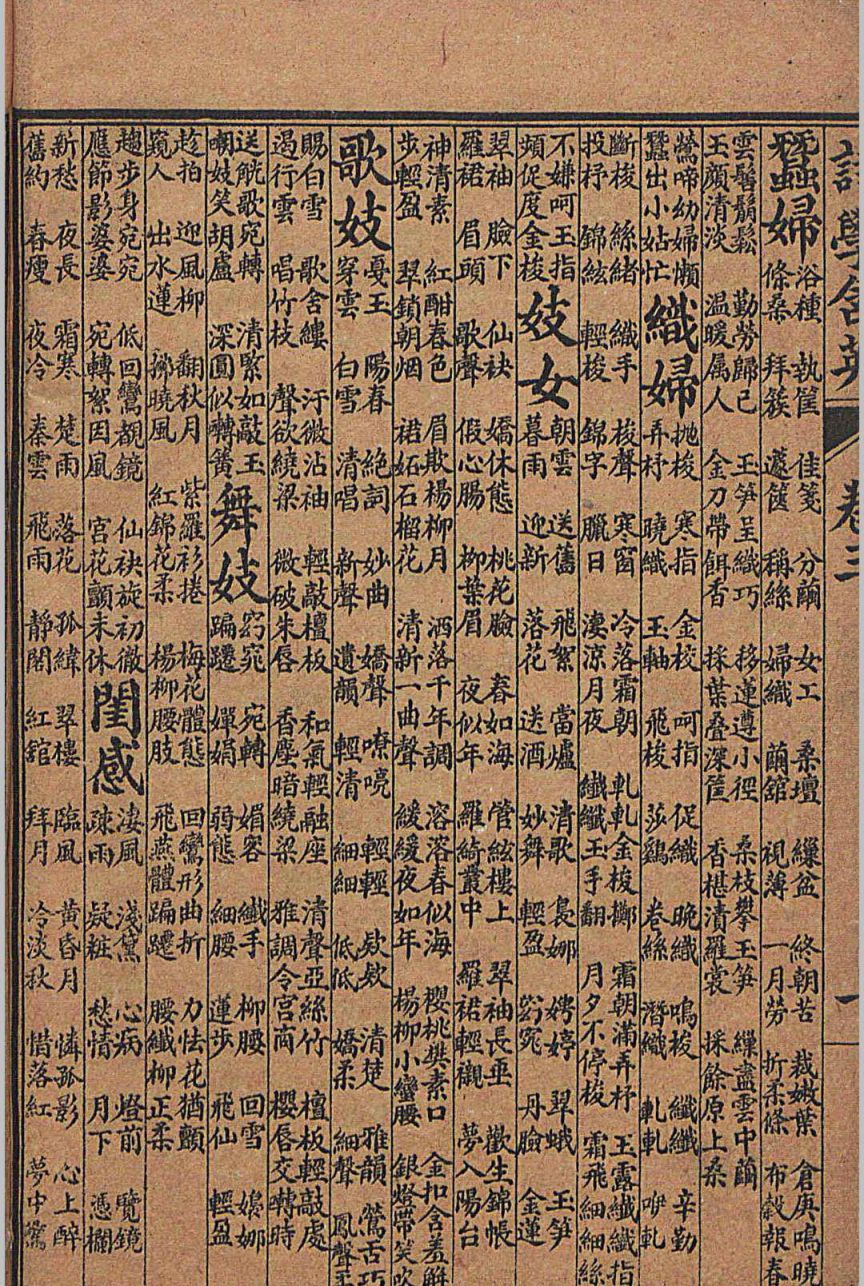 詩學含英 卷三 一
蠶婦
浴種 執筐 佳箋 分繭 女工 桑壇 繰盆 終朝苦 裁嫩葉 倉庚鳴曉
條桑 拜簇 蘧筐 稱絲 婦織 繭舘 視薄 一月勞 折柔條 布穀報春
雲鬟鬅鬆 勤勞歸已 玉笋呈織巧 移蓮遵小徑 桑枝攀玉笋 繰盡雲中繭
玉顏清淡 温暖属人 金刀帶餌香 採葉叠深筐 香椹漬羅裳 採餘原上桑
鶯啼幼婦懶
蠶出小姑忙
織婦
拋梭 寒指 金梭 呵指 促織 晚織 鳴梭 纖纖 辛勤
弄杼 曉織 玉軸 飛梭 莎鷄 卷絲 潛織 軋軋 咿軋
斷梭 絲緒 纖手 梭聲 寒窗 冷落霜朝 軋軋金梭擲 霜朝滿弄杼 玉露纖纖指
投杼 錦絃 輕梭 錦字 臘日 淒涼月夜 纖纖玉手翻 月夕不停梭 霜飛細細絲
不嫌呵玉指
頻促度金梭
妓女
朝雲 送舊 飛絮 當爐 清歌 裊娜 娉婷 翠蛾 玉笋
暮雨 迎新 落花 送酒 妙舞 輕盈 窈窕 丹臉 金蓮
翠袖 臉下 仙袂 嬌休態 桃花臉 春如海 管絃樓上 翠袖長垂 歡生錦帳
羅裙 眉頭 歌聲 假心腸 柳葉眉 夜似年 羅綺叢中 羅裙輕襯 夢入陽台
神清素 紅酣春色 眉欺楊柳月 洒落千年調 溶溶春似海 櫻桃樊素口 金扣含羞解
步輕盈 翠鎖朝烟 裙妬石榴花 清新一曲聲 緩緩夜如年 楊柳小蠻腰 銀燈帶笑吹
歌妓
戞玉 陽春 絶詞 妙曲 嬌聲 嘹喨 輕輕 欸欸 清楚 雅韻 鶯舌巧
穿雲 白雪 清唱 新聲 遺韻 輕清 細細 低低 嬌柔 細聲 鳳聲
賜白雪 歌舍縷 汗微沾袖 輕敲檀板 和氣輕融座 清聲亞絲竹 檀板輕敲處
遏行雲 唱竹枝 聲欲繞梁 微破朱唇 香塵暗繞梁 雅調令宮商 櫻唇交囀時
送觥歌宛轉 清緊如敲玉
嘲妓笑胡盧 深圓似轉簧
舞妓
窈窕 宛轉 媚容 纖手 柳腰 回雪 嬝娜
蹁躚 嬋娟 弱態 細腰 蓮步 飛仙 輕盈
趁拍 迎風柳 翻秋月 紫羅衫捲 梅花體態 回鸞形曲折 力怯花猶顫
窺人 出水蓮 挪曉風 紅錦花柔 楊柳腰肢 飛燕體蹁躚 腰纖柳正柔
趨步身宛宛 低回鸞覩鏡 仙袂旋初徹
應節影婆婆 宛轉絮因風 宮花顫未休
閨感
淒風 淺黛 心病 燈前 覽鏡
疎雨 凝粧 愁情 月下 憑欄
新愁 夜長 霜寒 楚雨 落花 孤緯 翠樓 臨風 黃昏月 憐孤影 心上醉
舊約 春瘦 夜冷 秦雲 飛雨 靜閣 紅舘 拜月 冷淡秋 惜落紅 夢中驚